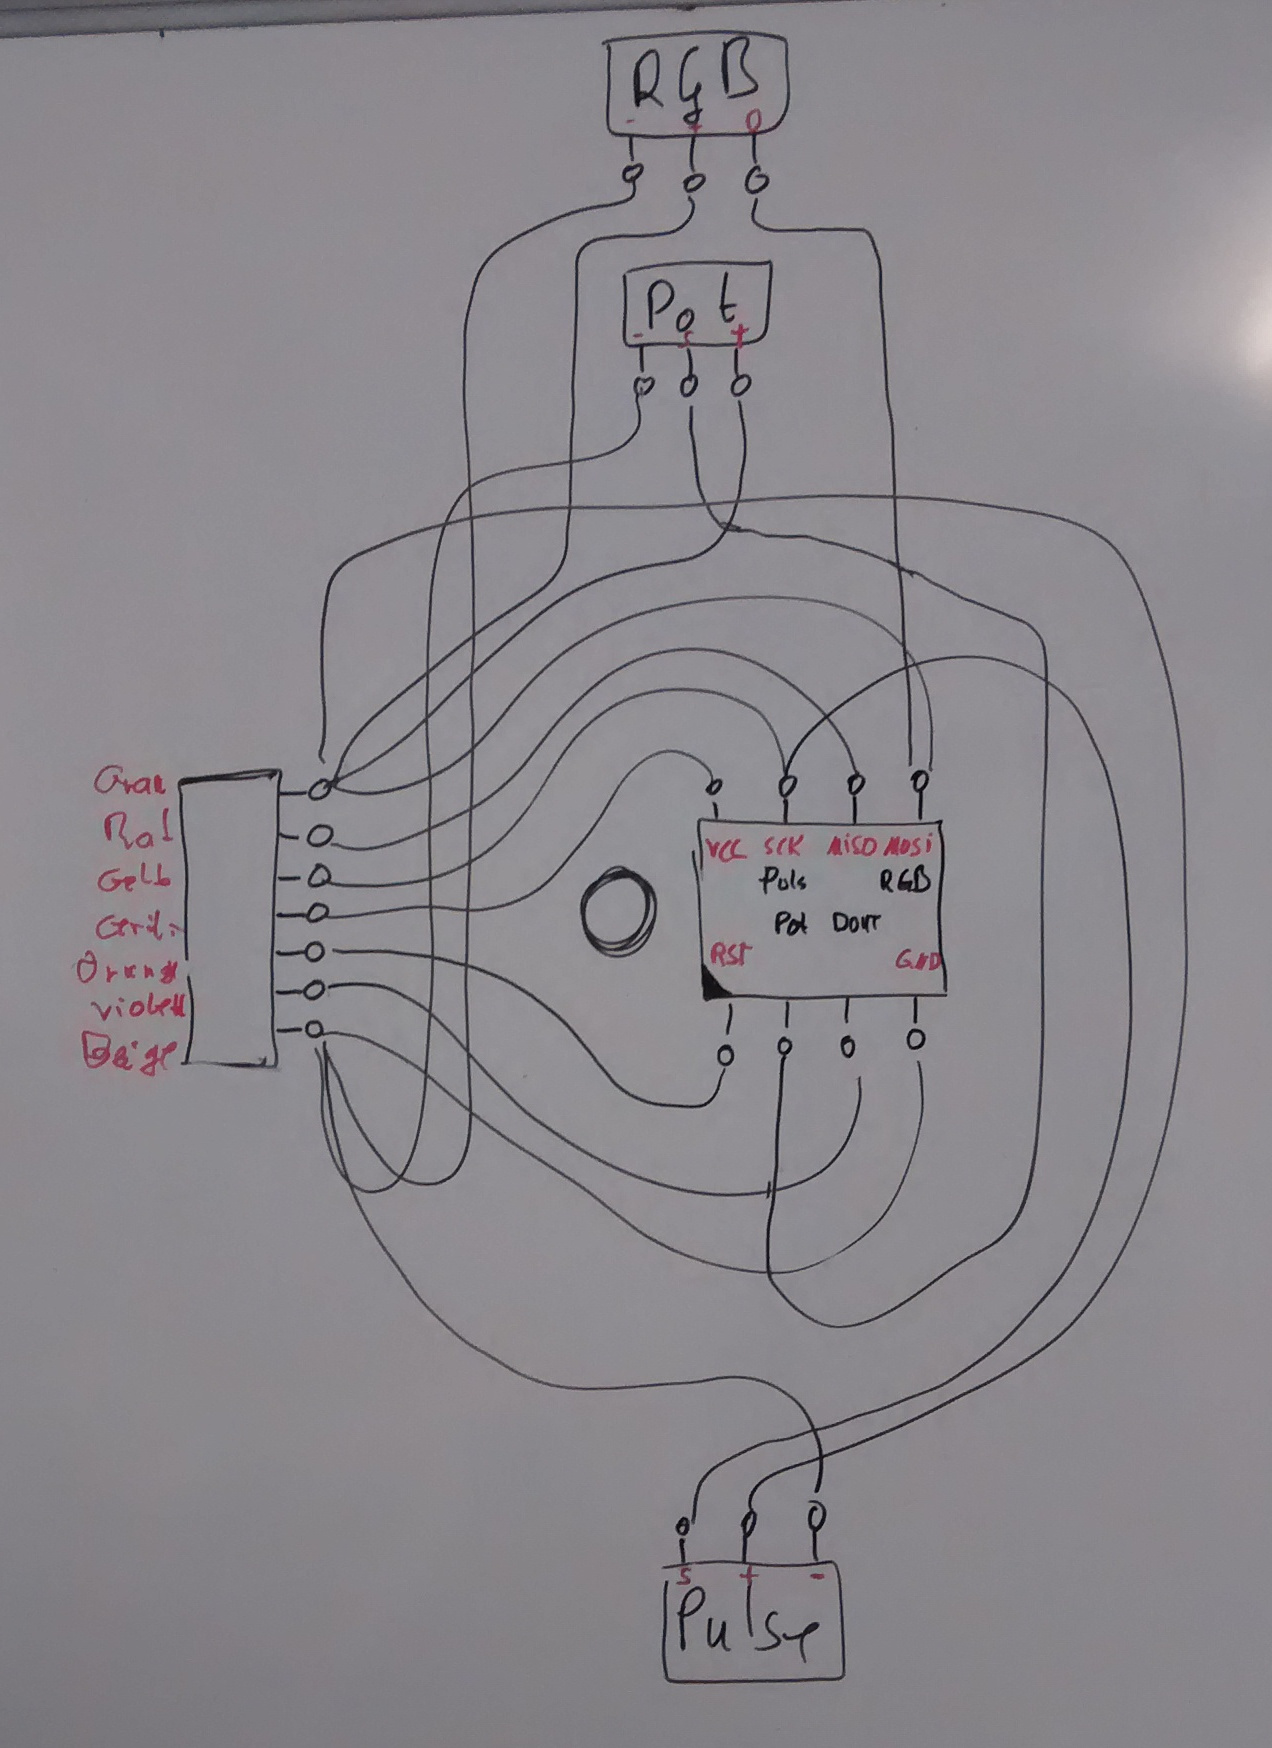 RGB
- + D
Pot
- S +
Grau
Rot
Gelb
Orang
Violett
Beige
VCC SCK MISO MOSI
Puls RGB
Pot Dout
RST GND
S + -
Pulse